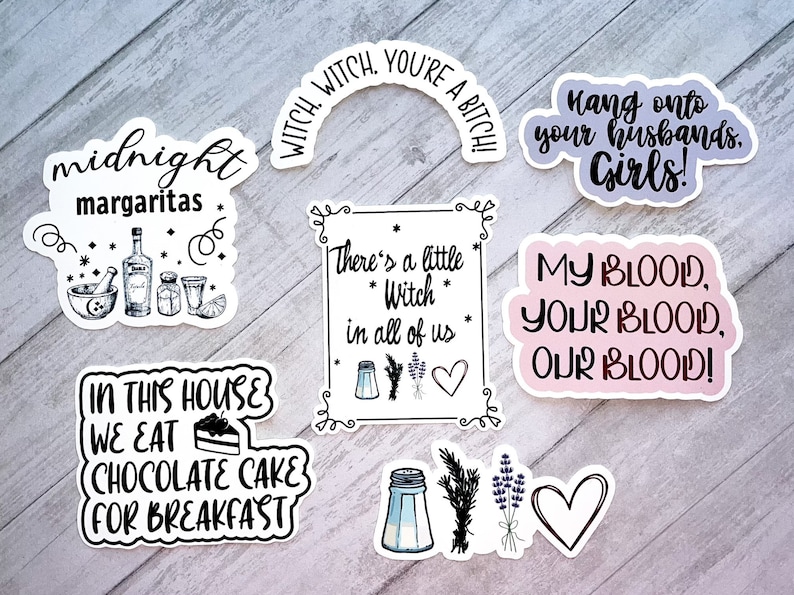 WITCH. WITCH. YOU'RE A BITCH!
Hang onto
your husbands,
Girls!
midnight
margaritas
There's a little
Witch
in all of us
MY BLOOD,
YOUR BLOOD,
OUR BLOOD!
IN THIS HOUSE
WE EAT
CHOCOLATE CAKE
FOR BREAKFAST